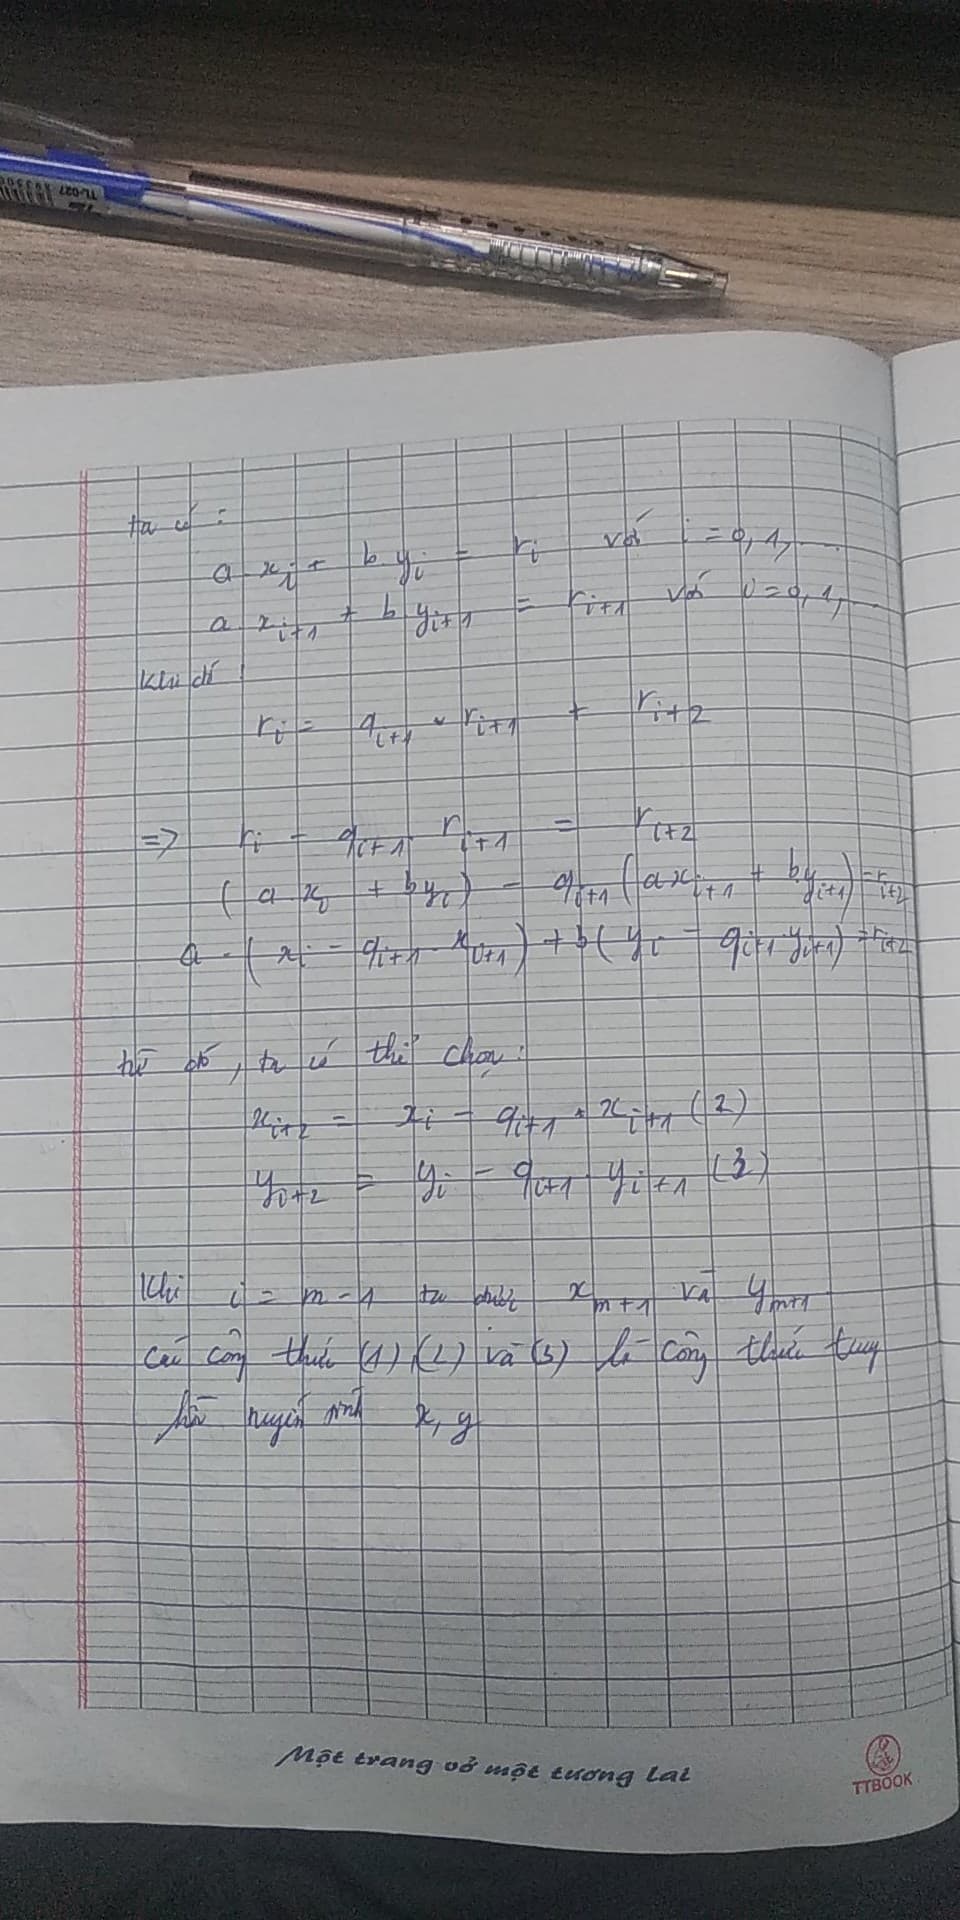 ta có :
a xi + b yi = ri với i = 0, 1, ...
a xi+1 + b yi+1 = ri+1 với i = 0, 1, ...
Khi đó
ri = qi+1 . ri+1 + ri+2
=> ri - qi+1 . ri+1 = ri+2
(a xi + byi) - qi+1 (axi+1 + byi+1) = ri+2
a . (xi - qi+1 . xi+1) + b( yi - qi+1 . yi+1) = ri+2
từ đó, ta có thể chọn :
xi+2 = xi - qi+1 . xi+1 (2)
yi+2 = yi - qi+1 . yi+1 (3)
Khi i = m - 1 ta được xm+1 và ym+1
các công thức (1), (2) và (3) là công thức truy
x, y
Một trang vở một tương lai
TTBOOK
TL-027